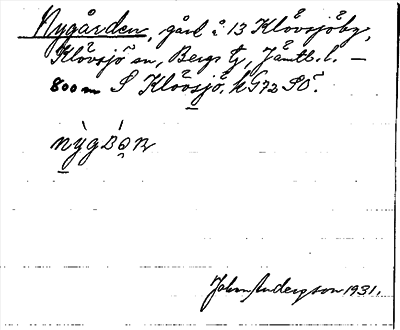 Nygården, gård i 13 Klövsjöby,
Klövsjö sn, Bergs tg, Jämtl. l. —
800 m S Klövsjö. kG72 SO.
John Anderson 1931.